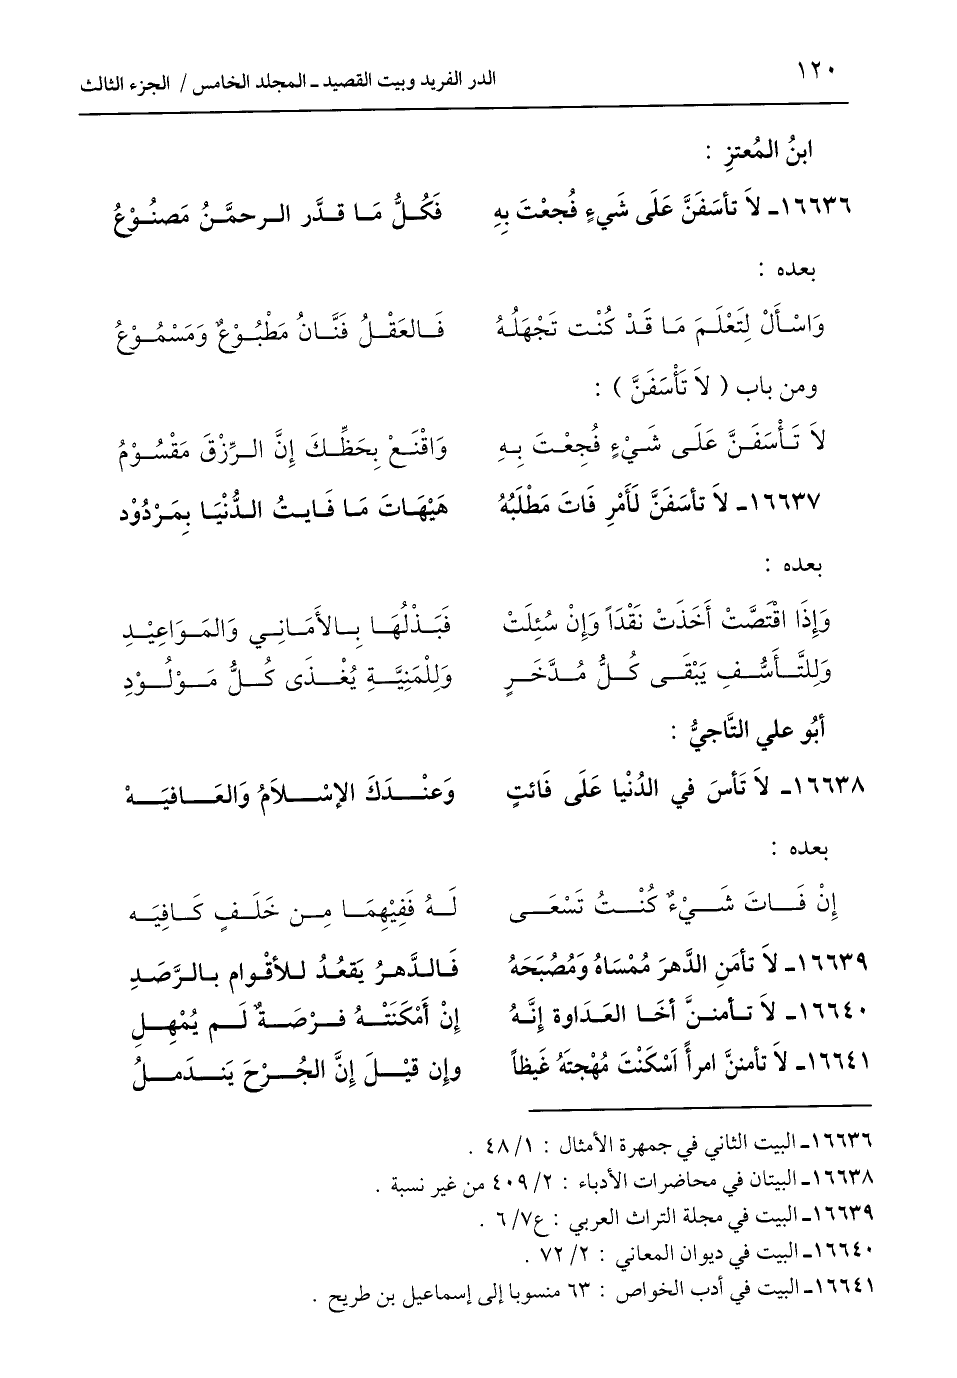 ١٢٠ الدر الفريد وبيت القصيد ـ المجلد الخامس / الجزء الثالث
ابنُ المُعتزِ :
١٦٦٣٦ـ لاَ تأسَفَنَّ عَلَى شَيءٍ فُجعْتَ بِهِ فَكُلُّ مَا قدَّر الرحمَّنُ مَصنُوْعُ
بعده :
وَاسْأَلْ لِتَعْلَمَ مَا قَدْ كُنْت تَجْهَلُهُ فَالعَقْلُ فَنَّانُ مَطْبُوْعٌ وَمَسْمُوْعُ
ومن باب ( لاَ تَأْسَفَنَّ ) :
لاَ تَأْسَفَنَّ عَلَى شَيْءٍ فُجِعْتَ بِهِ وَاقْنَعْ بِحَظِّكَ إِنَّ الرِّزْقَ مَقْسُوْمُ
١٦٦٣٧ـ لاَ تأسَفَنَّ لَأَمْرِ فَاتَ مَطْلَبُهُ هَيْهَاتَ مَا فَايتُ الدُّنْيَا بِمَرْدُوْد
بعده :
وَإِذَا اقْتَصَّتْ أَخَذَتْ نَقْدَاً وَإِنْ سُئِلَتْ فَبَذْلُهَا بِالأَمَانِي وَالمَوَاعِيْدِ
وَلِلتَّأَسُّفِ يَبْقَى كُلُّ مُدَّخَرٍ وَلِلْمَنِيَّةِ يُغْذَى كُلُّ مَوْلُوْدِ
أبُو علي التَّاجيُّ :
١٦٦٣٨ـ لاَ تَأسَ في الدُنْيا عَلَى فَائتٍ وَعنْدَكَ الإسْلاَمُ وَالعَافيَهْ
بعده :
إِنْ فَاتَ شَيْءٌ كُنْتُ تَسْعَى لَهُ فَفِيْهِمَا مِن خَلَفٍ كَافِيَه
١٦٦٣٩ـ لاَ تأمَنِ الدَّهرَ مُمْسَاهُ وَمُصْبَحَهُ فَالدَّهرُ يَقعُدُ للأقْوام بالرَّصَدِ
١٦٦٤٠ـ لاَ تأمننَّ أخَا العَدَاوة إنَّهُ إنْ أمْكَنَتْهُ فرْصَةٌ لَم يُمْهِلِ
١٦٦٤١ـ لاَ تأمننَّ امرأً اَسْكَنْتَ مُهْجتَهُ غَيظاً وإن قيْلَ إنَّ الجُرْحَ يَندَملُ
١٦٦٣٦ـ البيت الثاني في جمهرة الأمثال : ٤٨/١ .
١٦٦٣٨ـ البيتان في محاضرات الأدباء : ٤٠٩/٢ من غير نسبة .
١٦٦٣٩ـ البيت في مجلة التراث العربي : ع٦/٧ .
١٦٦٤٠ـ البيت في ديوان المعاني : ٧٢/٢ .
١٦٦٤١ـ البيت في أدب الخواص : ٦٣ منسوبا إلى إسماعيل بن طريح .